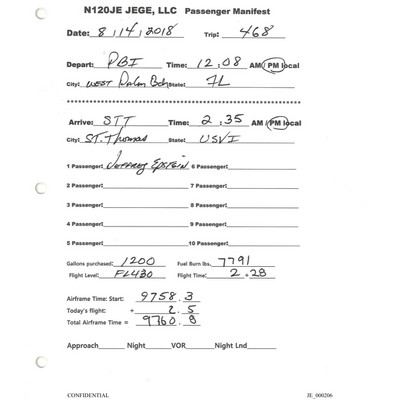 N120JE JEGE, LLC Passenger Manifest
Date: 8/14/2018 Trip: 468
Depart: PBI Time: 12:08 AM/PM local
City: West Palm Bch State: FL
Arrive: STT Time: 2:35 AM/PM local
City: ST. Thomas State: USVI
1 Passenger: Jeffrey Epstein 6 Passenger:
2 Passenger: 7 Passenger:
3 Passenger: 8 Passenger:
4 Passenger: 9 Passenger:
5 Passenger: 10 Passenger:
Gallons purchased: 1200 Fuel Burn lbs. 7791
Flight Level: FL430 Flight Time: 2.28
Airframe Time: Start: 9758.3
Today's flight: + 2.5
Total Airframe Time = 9760.8
Approach Night VOR Night Lnd
CONFIDENTIAL JE_000206